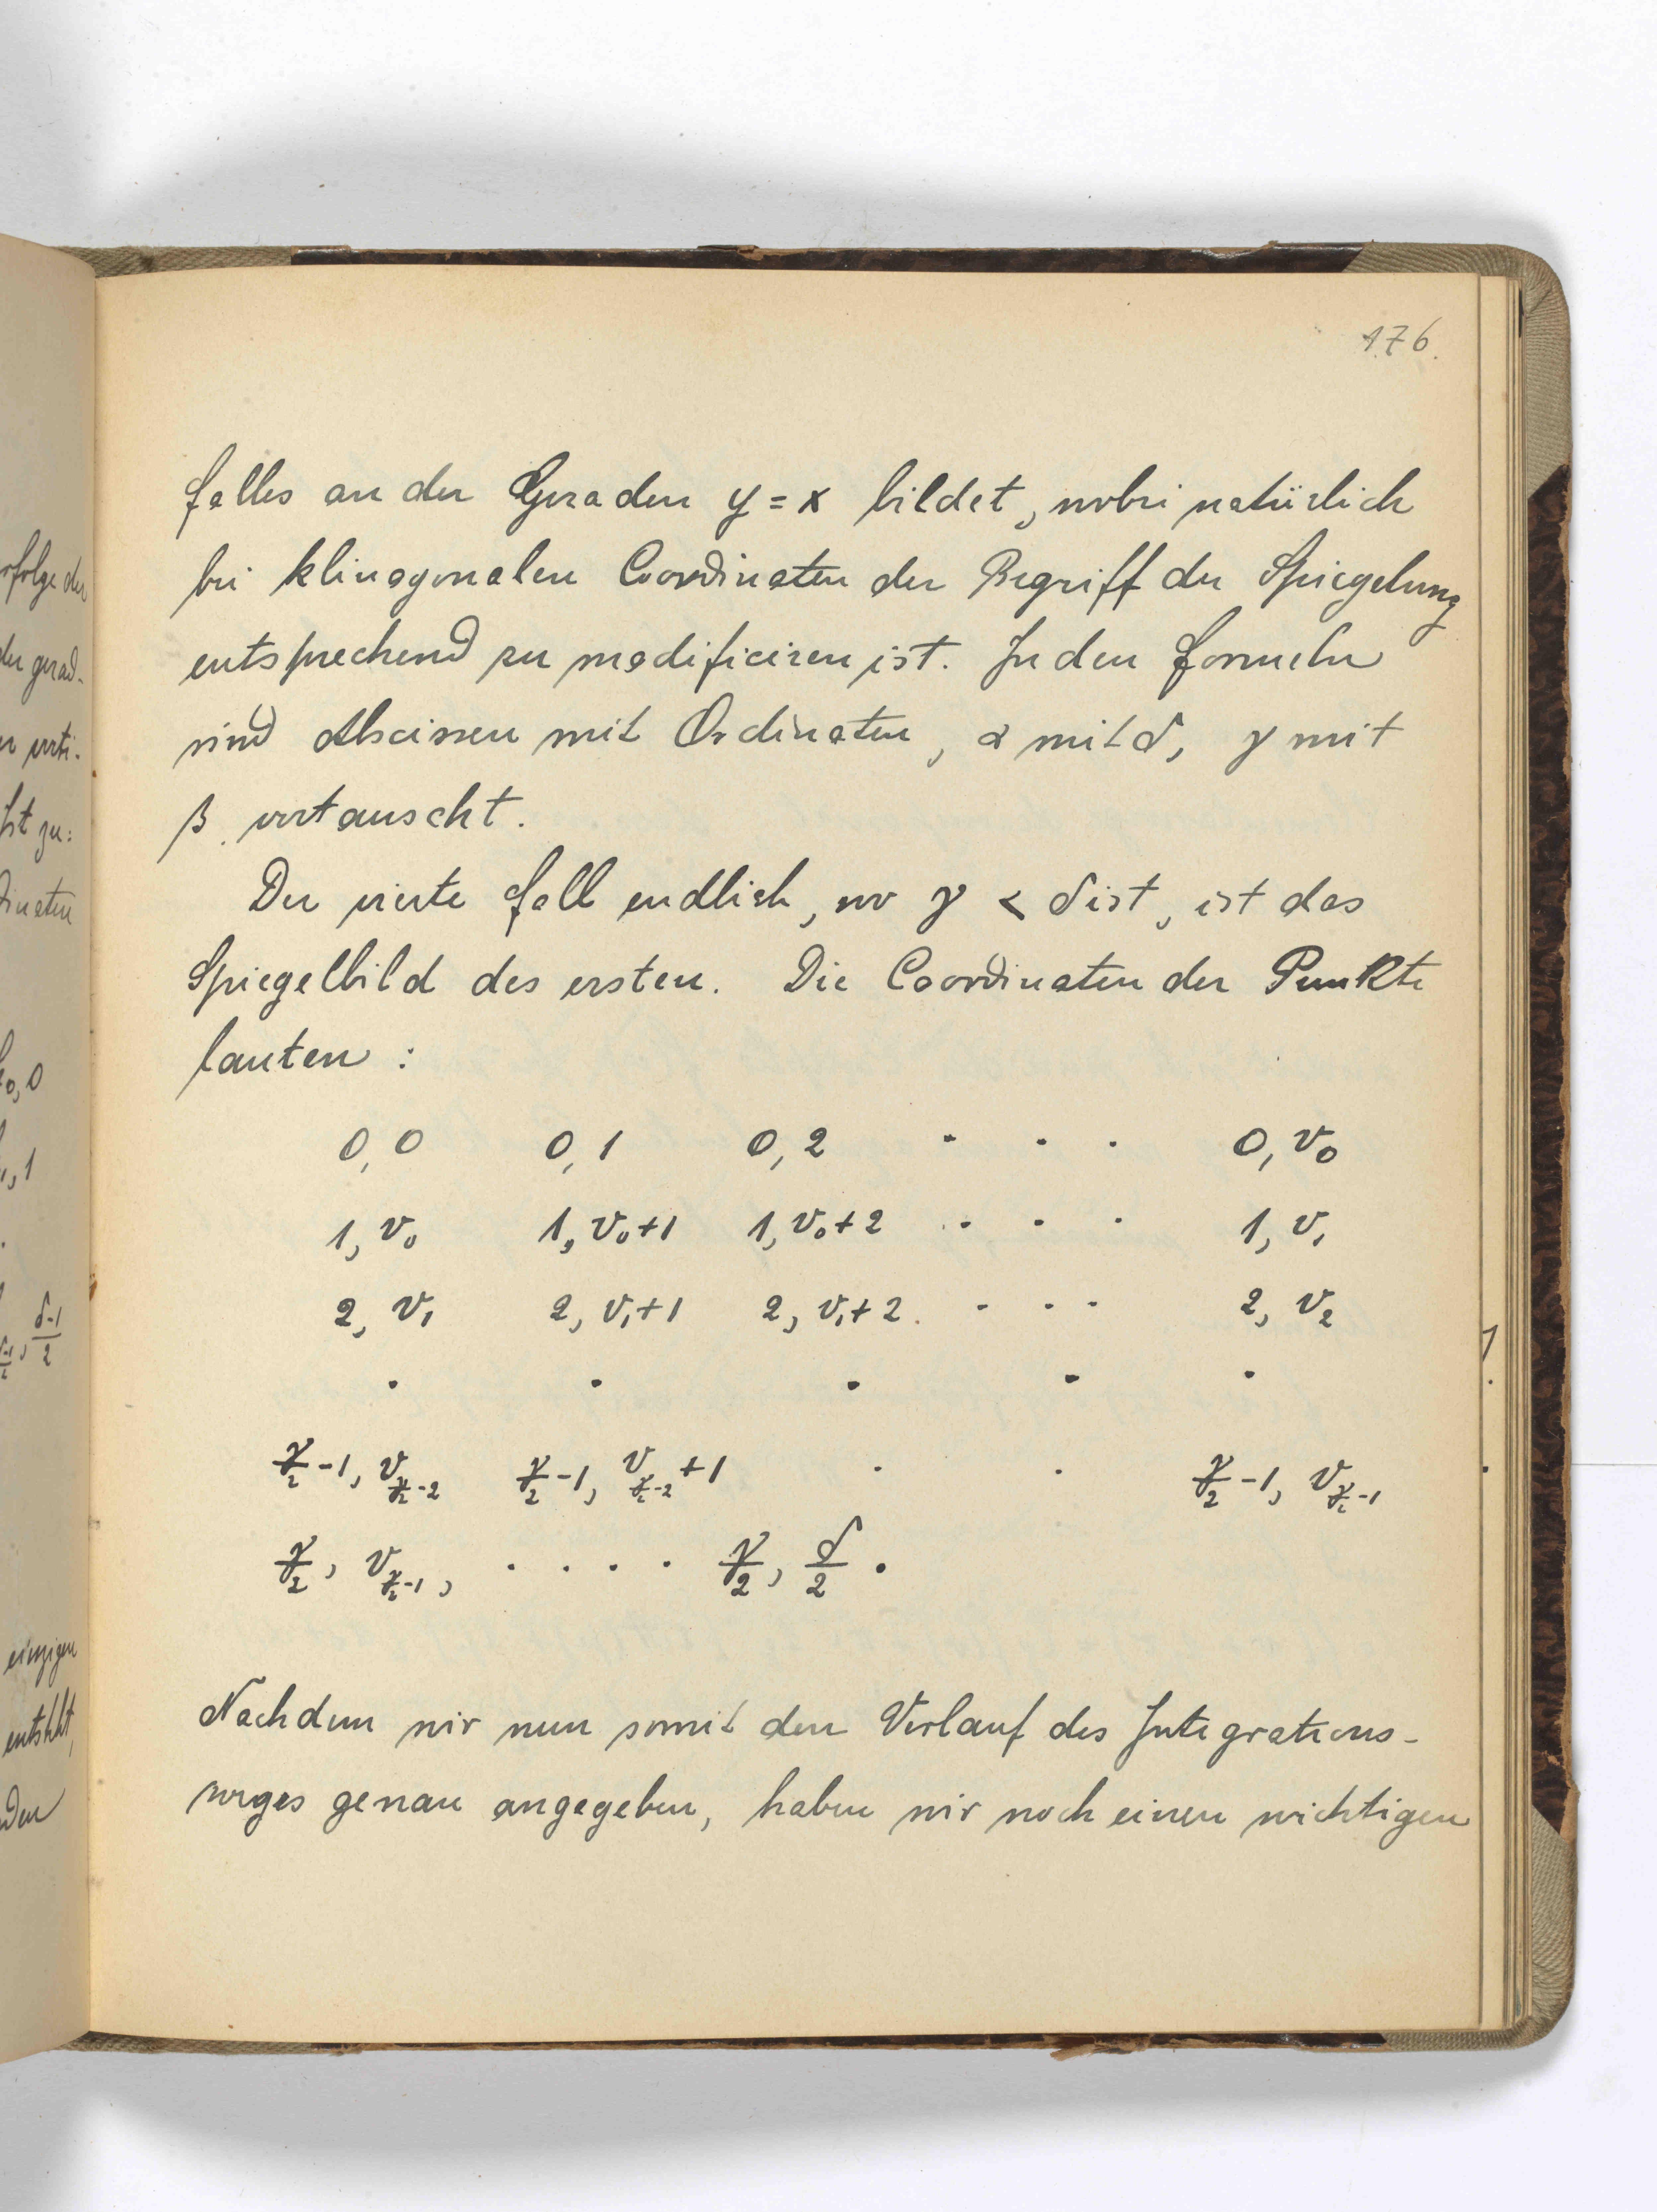 176.
falles an der Geraden y = x bildet, wobei natürlich
bei klinogonalen Coordinaten der Begriff der Spiegelung
entsprechend zu modificiren ist. In den Formeln
sind Abscissen mit Ordinaten, α mit δ, γ mit
β vertauscht.
Der vierte Fall endlich, wo γ < δ ist, ist das
Spiegelbild des ersten. Die Coordinaten der Punkte
lauten:
0, 0 0, 1 0, 2 . . . 0, v₀
1, v₀ 1, v₀+1 1, v₀+2 . . . 1, v₁
2, v₁ 2, v₁+1 2, v₁+2 . . . 2, v₂
. . . . .
γ/2 -1, v_{γ/2 -2} γ/2 -1, v_{γ/2 -2} +1 . . γ/2 -1, v_{γ/2 -1}
γ/2, v_{γ/2 -1}, . . . . γ/2, δ/2 .
Nachdem wir nun somit den Verlauf des Integrations-
weges genau angegeben, haben wir noch einen wichtigen
rfolge der
der grad-
verti-
ist zu:
dinaten
0, 0
, 1
δ-1/2
einzigen
entsteht,
den